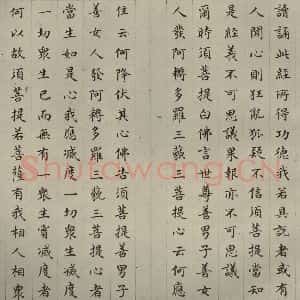 讀誦此經所得功德我若具說者或有
人聞心則狂亂狐疑不信須菩提當知
是經義不可思議果報亦不可思議
爾時須菩提白佛言世尊善男子善女
人發阿耨多羅三藐三菩提心云何應
住云何降伏其心佛告須菩提善男子
善女人發阿耨多羅三藐三菩提心者
當生如是心我應滅度一切衆生滅度
一切衆生已而無有一衆生實滅度者
何以故須菩提若菩薩有我相人相衆
Shufawang.CN